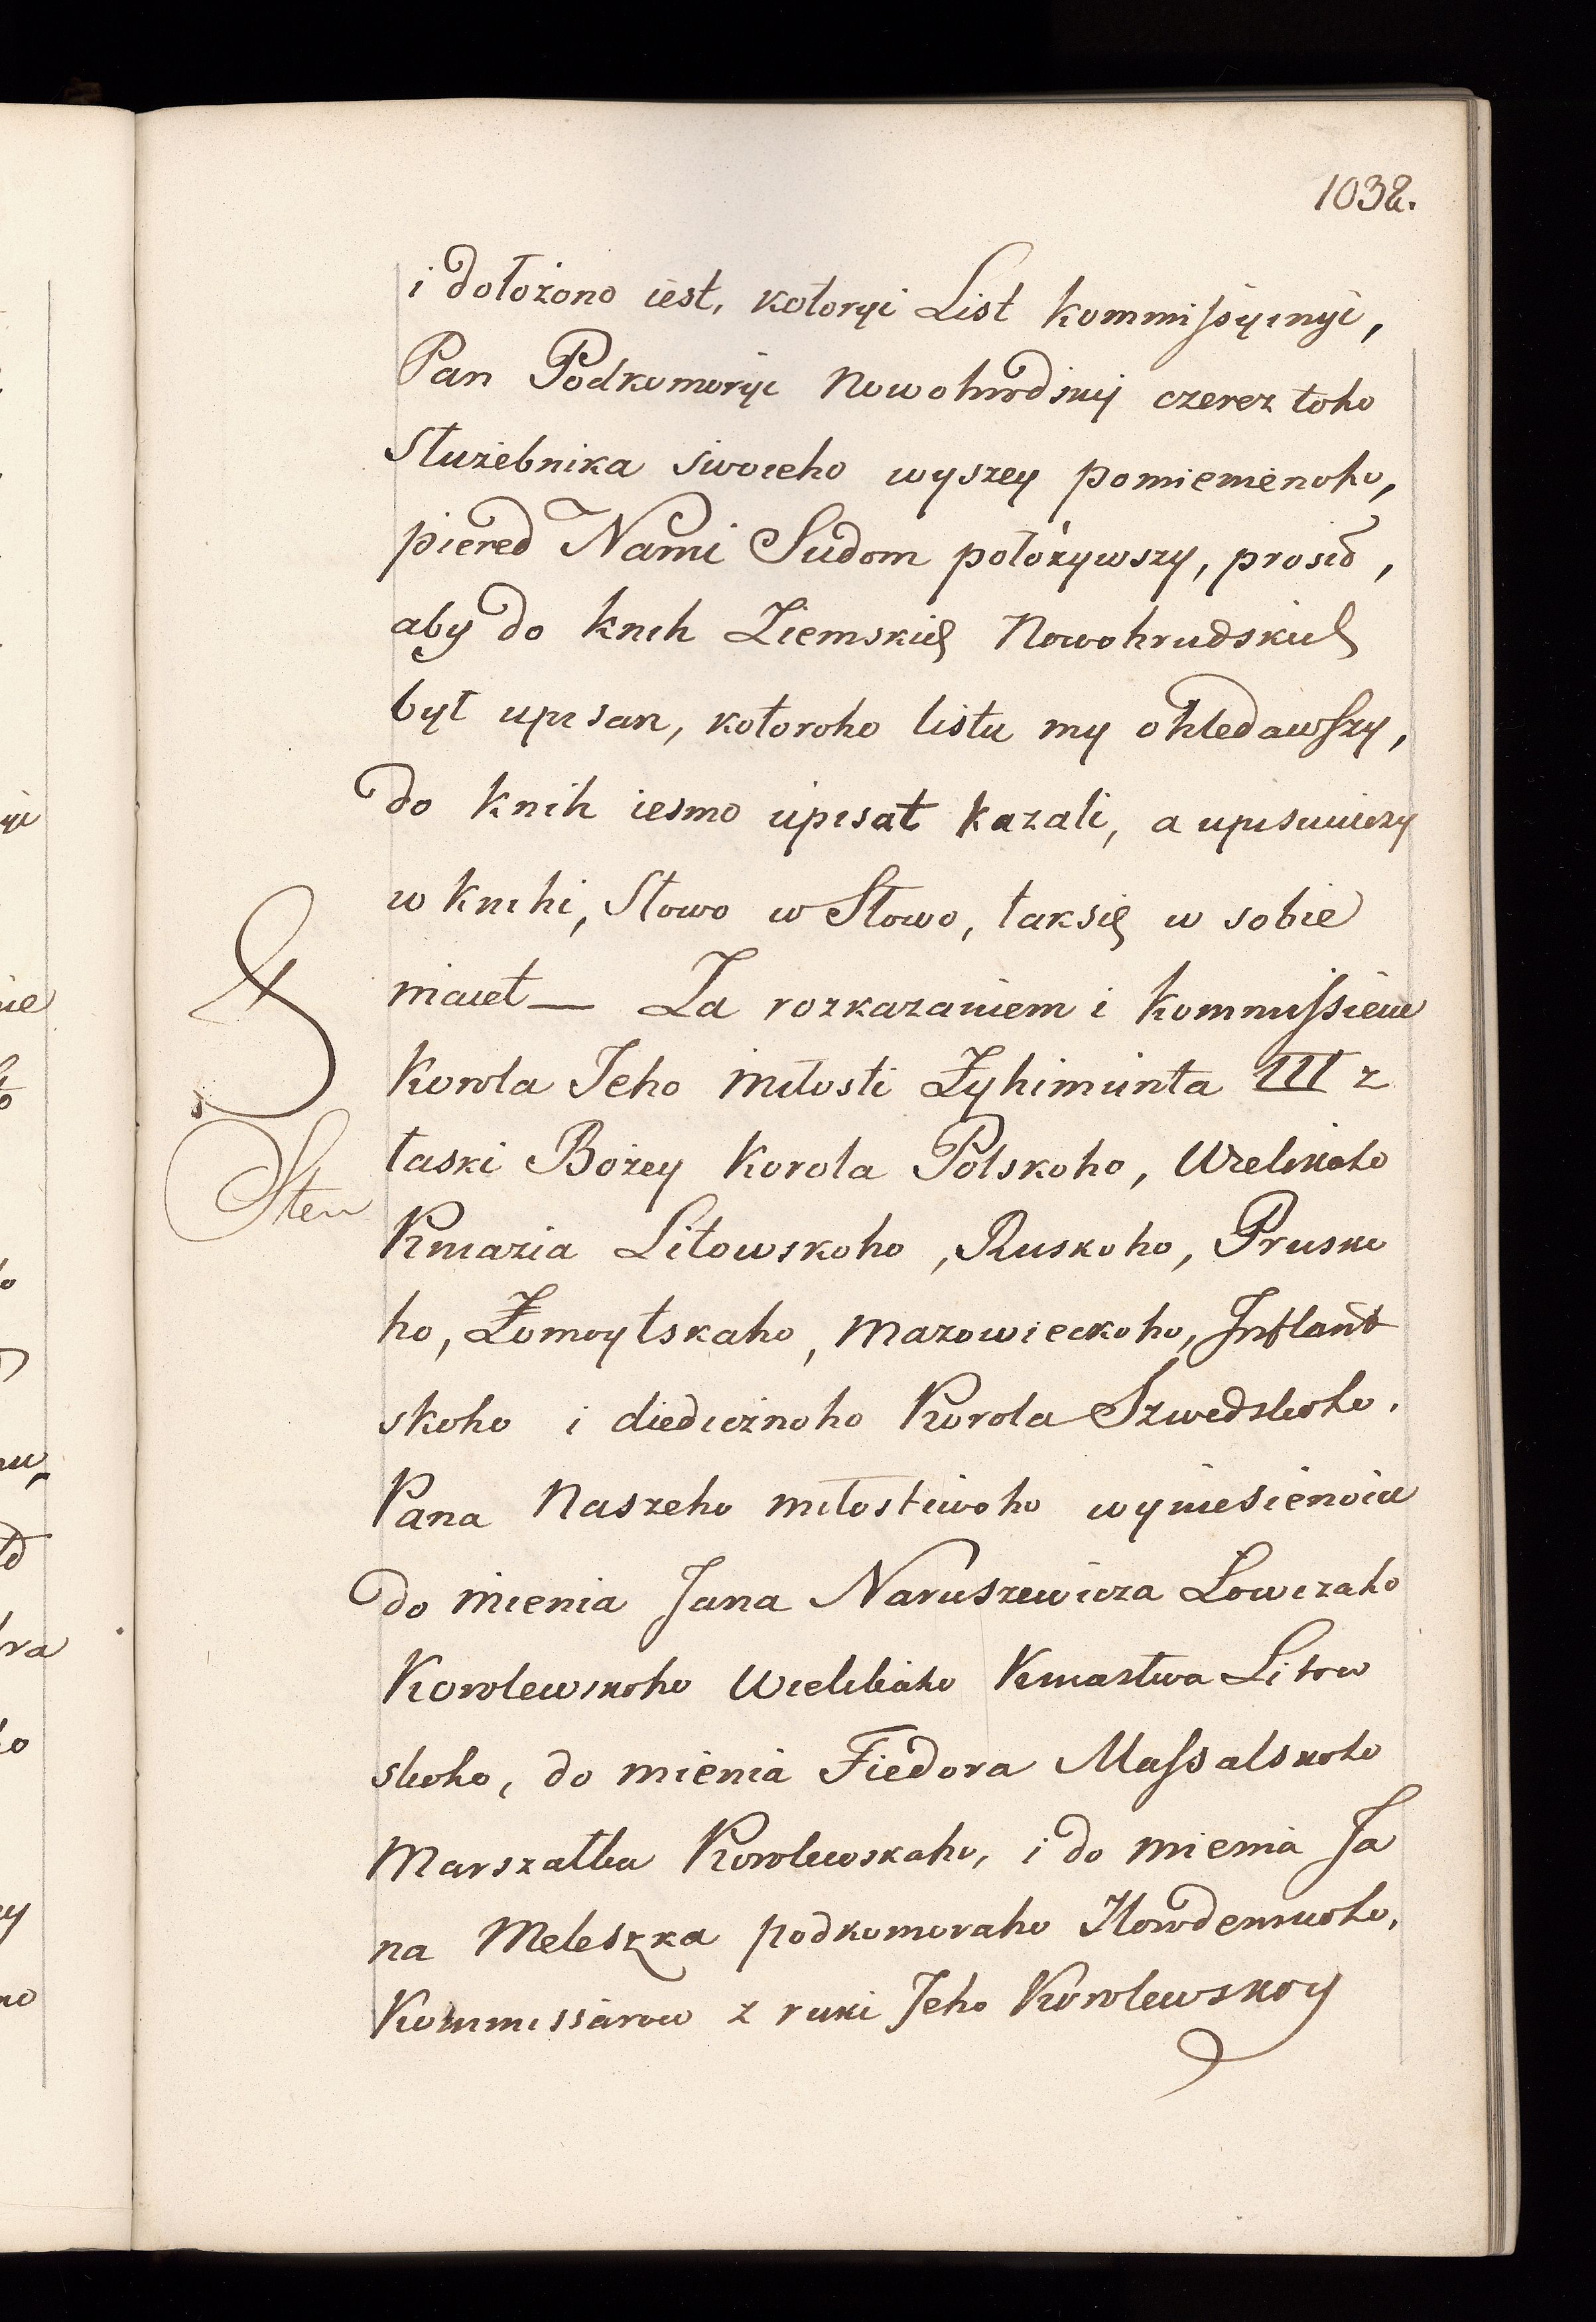 1032.
i dołożono iest, kotoryi List kommissyinyi,
Pan Podkomoryi Nowohrodskij czerez toho
Służebnika swoieho wyszey pomienienoho,
piered Nami Sudom położywszy, prosił,
aby do knih Ziemskich Nowohrudskich
był upisan, kotoroho listu my ohledawszy,
do knih iesmo upisat kazali, a upisuiuczy
w knihi, Słowo w Słowo, tak się w sobie
maiet — Za rozkazaniem i kommissieiu
Korola Jeho miłosti Żyhimunta III z
łaski Bożey Korola Polskoho, Wielikoho
Kniazia Litowskoho, Ruskoho, Prusko
ho, Żomoytskaho, Mazowieckoho, Inflant
skoho i diedicznoho Korola Szwedskoho.
Pana Naszeho miłostiwoho wyniesienoiu
do mienia Jana Naruszewicza Łowczaho
Korolewskoho Wielikaho Kniastwa Litow
skoho, do mienia Fiedora Massalskoho
Marszałka Korolewskaho, i do mienia Ja
na Meleszka podkomoraho
Kommissarow z ruki Jeho Korolewskoy